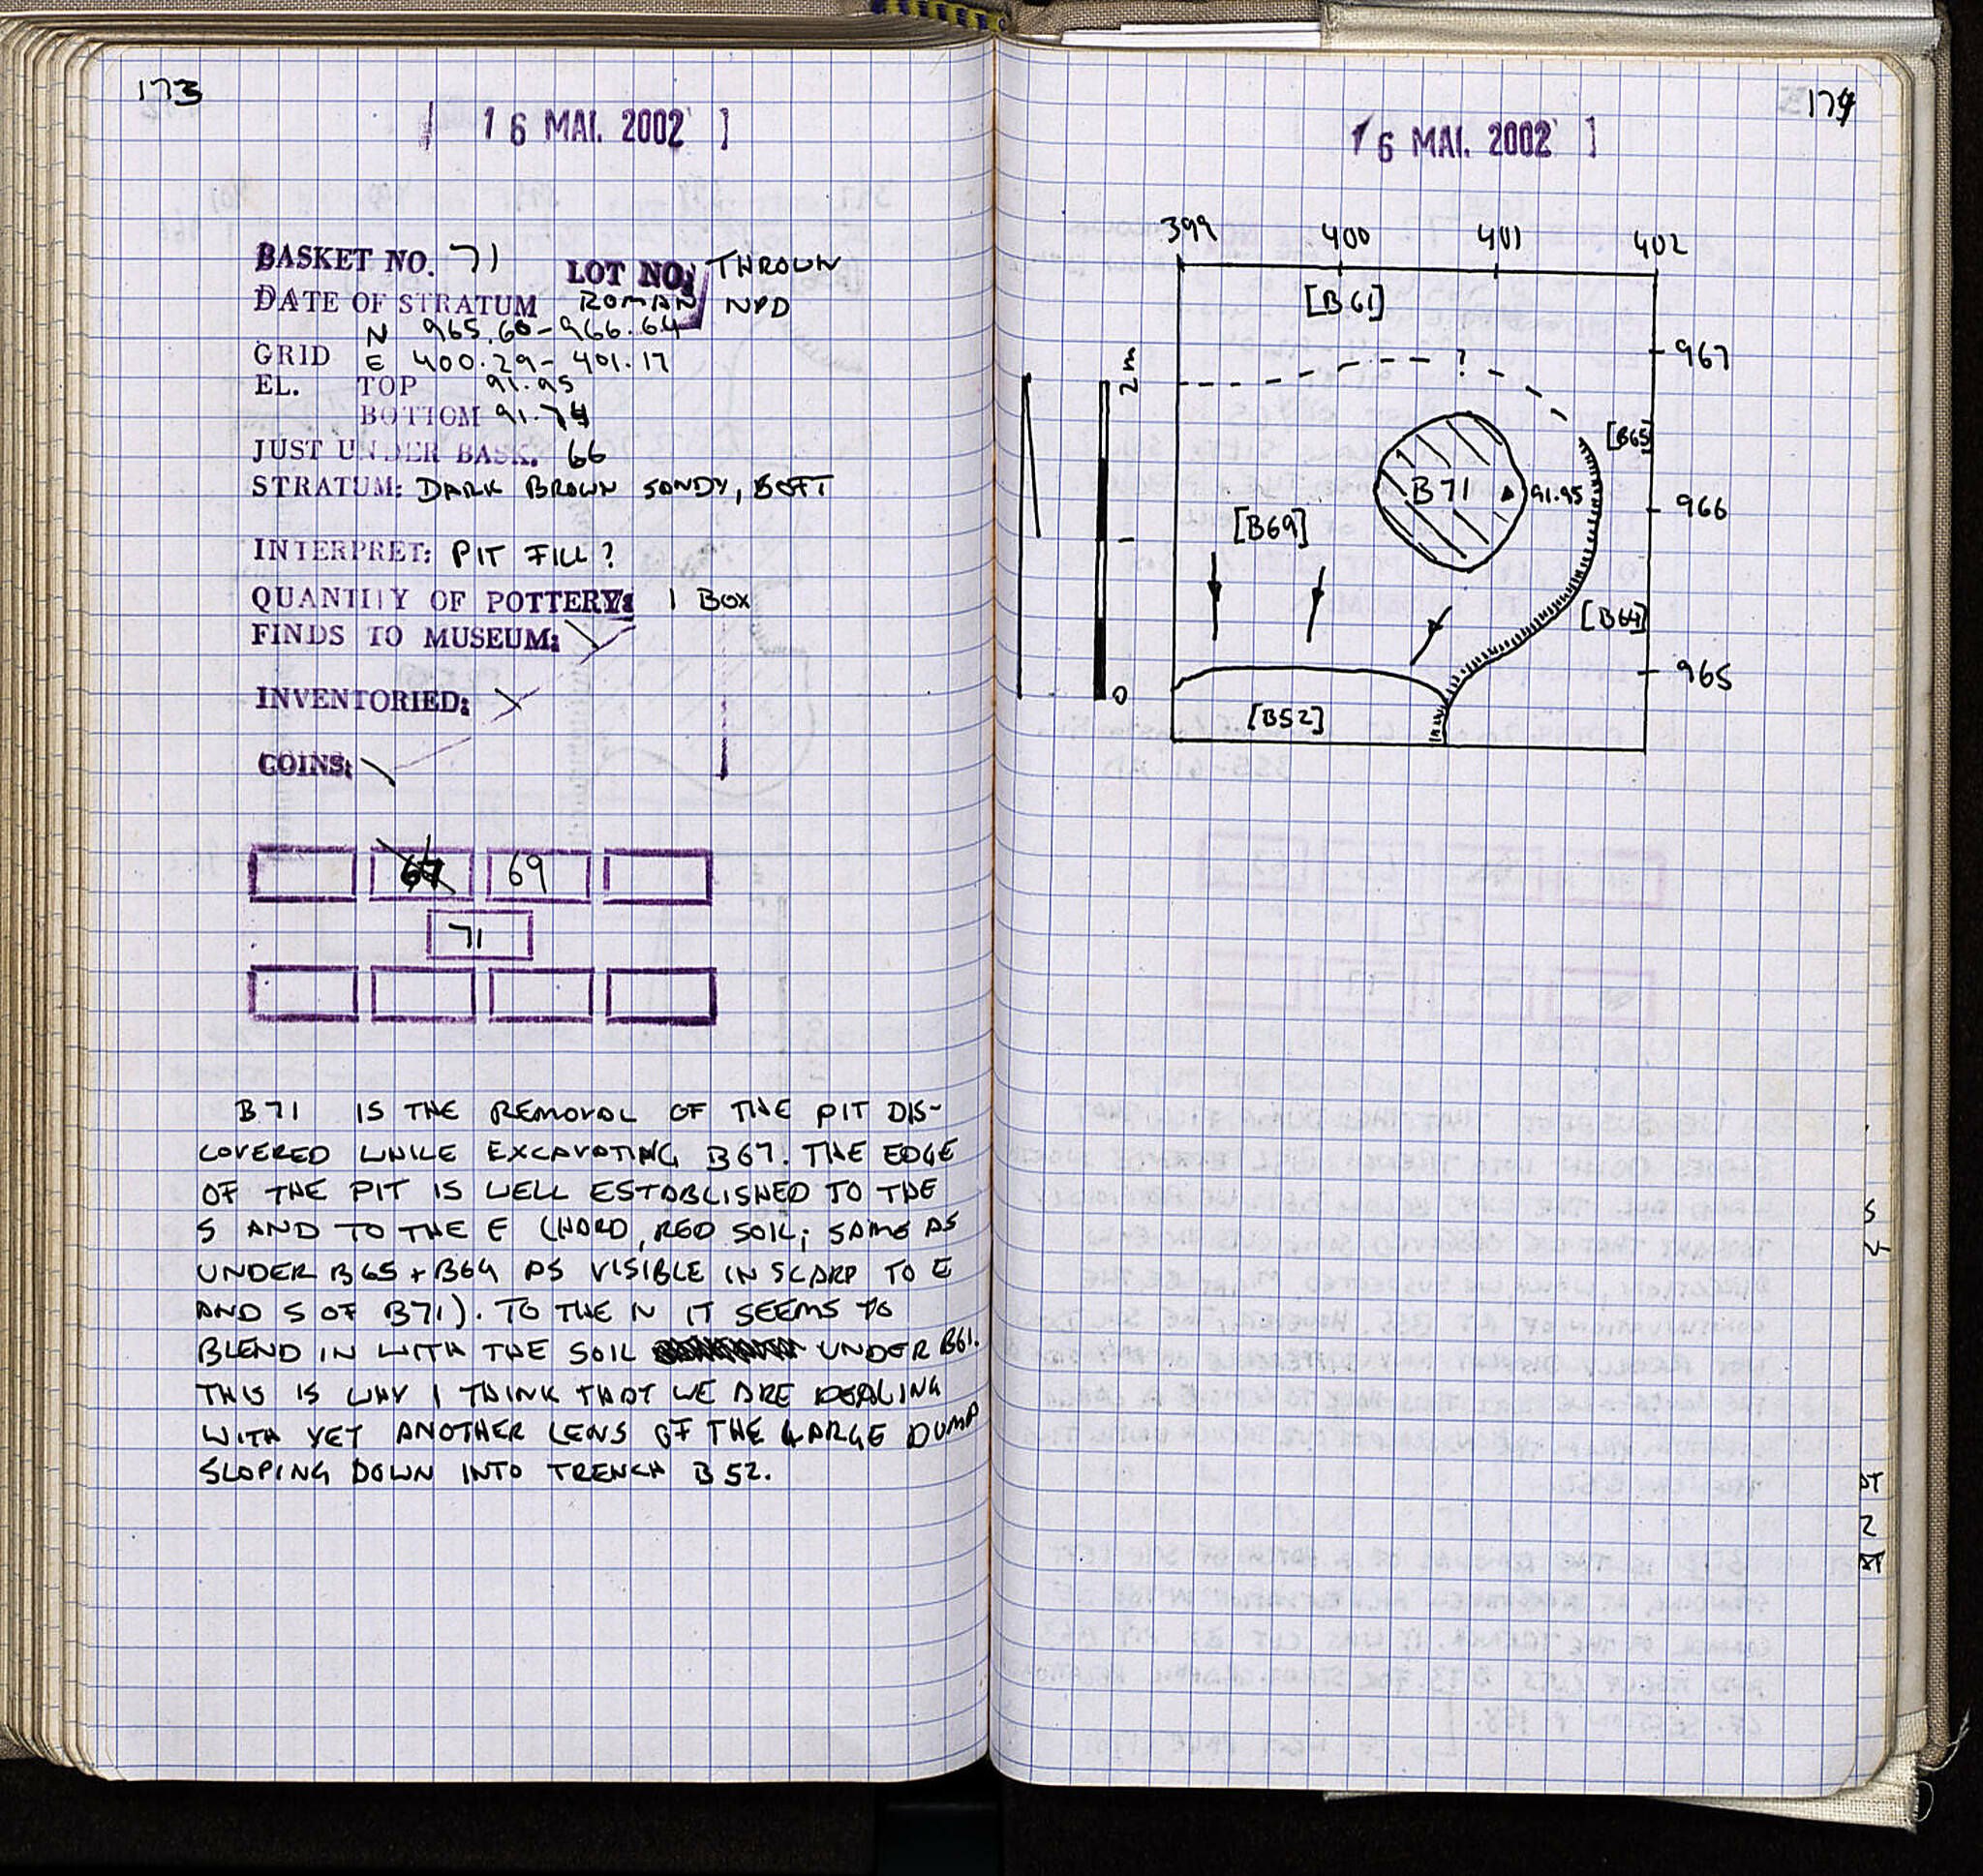 173
16 MAI. 2002
BASKET NO. 71 LOT NO: THROWN
DATE OF STRATUM ROMAN NPD
N 965.60-966.64
GRID E 400.29-401.17
EL. TOP 91.95
BOTTOM 91.74
JUST UNDER BASK. 66
STRATUM: DARK BROWN SANDY, SOFT
INTERPRET: PIT FILL?
QUANTITY OF POTTERY: 1 BOX
FINDS TO MUSEUM:
INVENTORIED:
COINS:
67 69
71
B71 IS THE REMOVAL OF THE PIT DIS-
COVERED WHILE EXCAVATING B67. THE EDGE
OF THE PIT IS WELL ESTABLISHED TO THE
S AND TO THE E (HARD, RED SOIL; SAME AS
UNDER B65 + B64 AS VISIBLE IN SCARP TO E
AND S OF B71). TO THE N IT SEEMS TO
BLEND IN WITH THE SOIL UNDER B61.
THIS IS WHY I THINK THAT WE ARE DEALING
WITH YET ANOTHER LENS OF THE LARGE DUMP
SLOPING DOWN INTO TRENCH B52.
174
16 MAI. 2002
399 400 401 402
[B61]
967
?
2m
[B65]
B71 91.95
966
[B69]
[B64]
965
0
[B52]